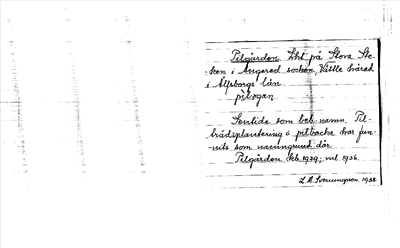 Pilgården Lht på Stora Ste-
ken i Angered socken, Vättle härad
i Älvsborgs län.
pilsgan
Sentida som beb. namn. Pil-
trädsplantering o pilbacke har fun-
nits som namngrund där.
Pilgården beb. 1929, ml. 1936.
L. A. Svennungsson, 1938